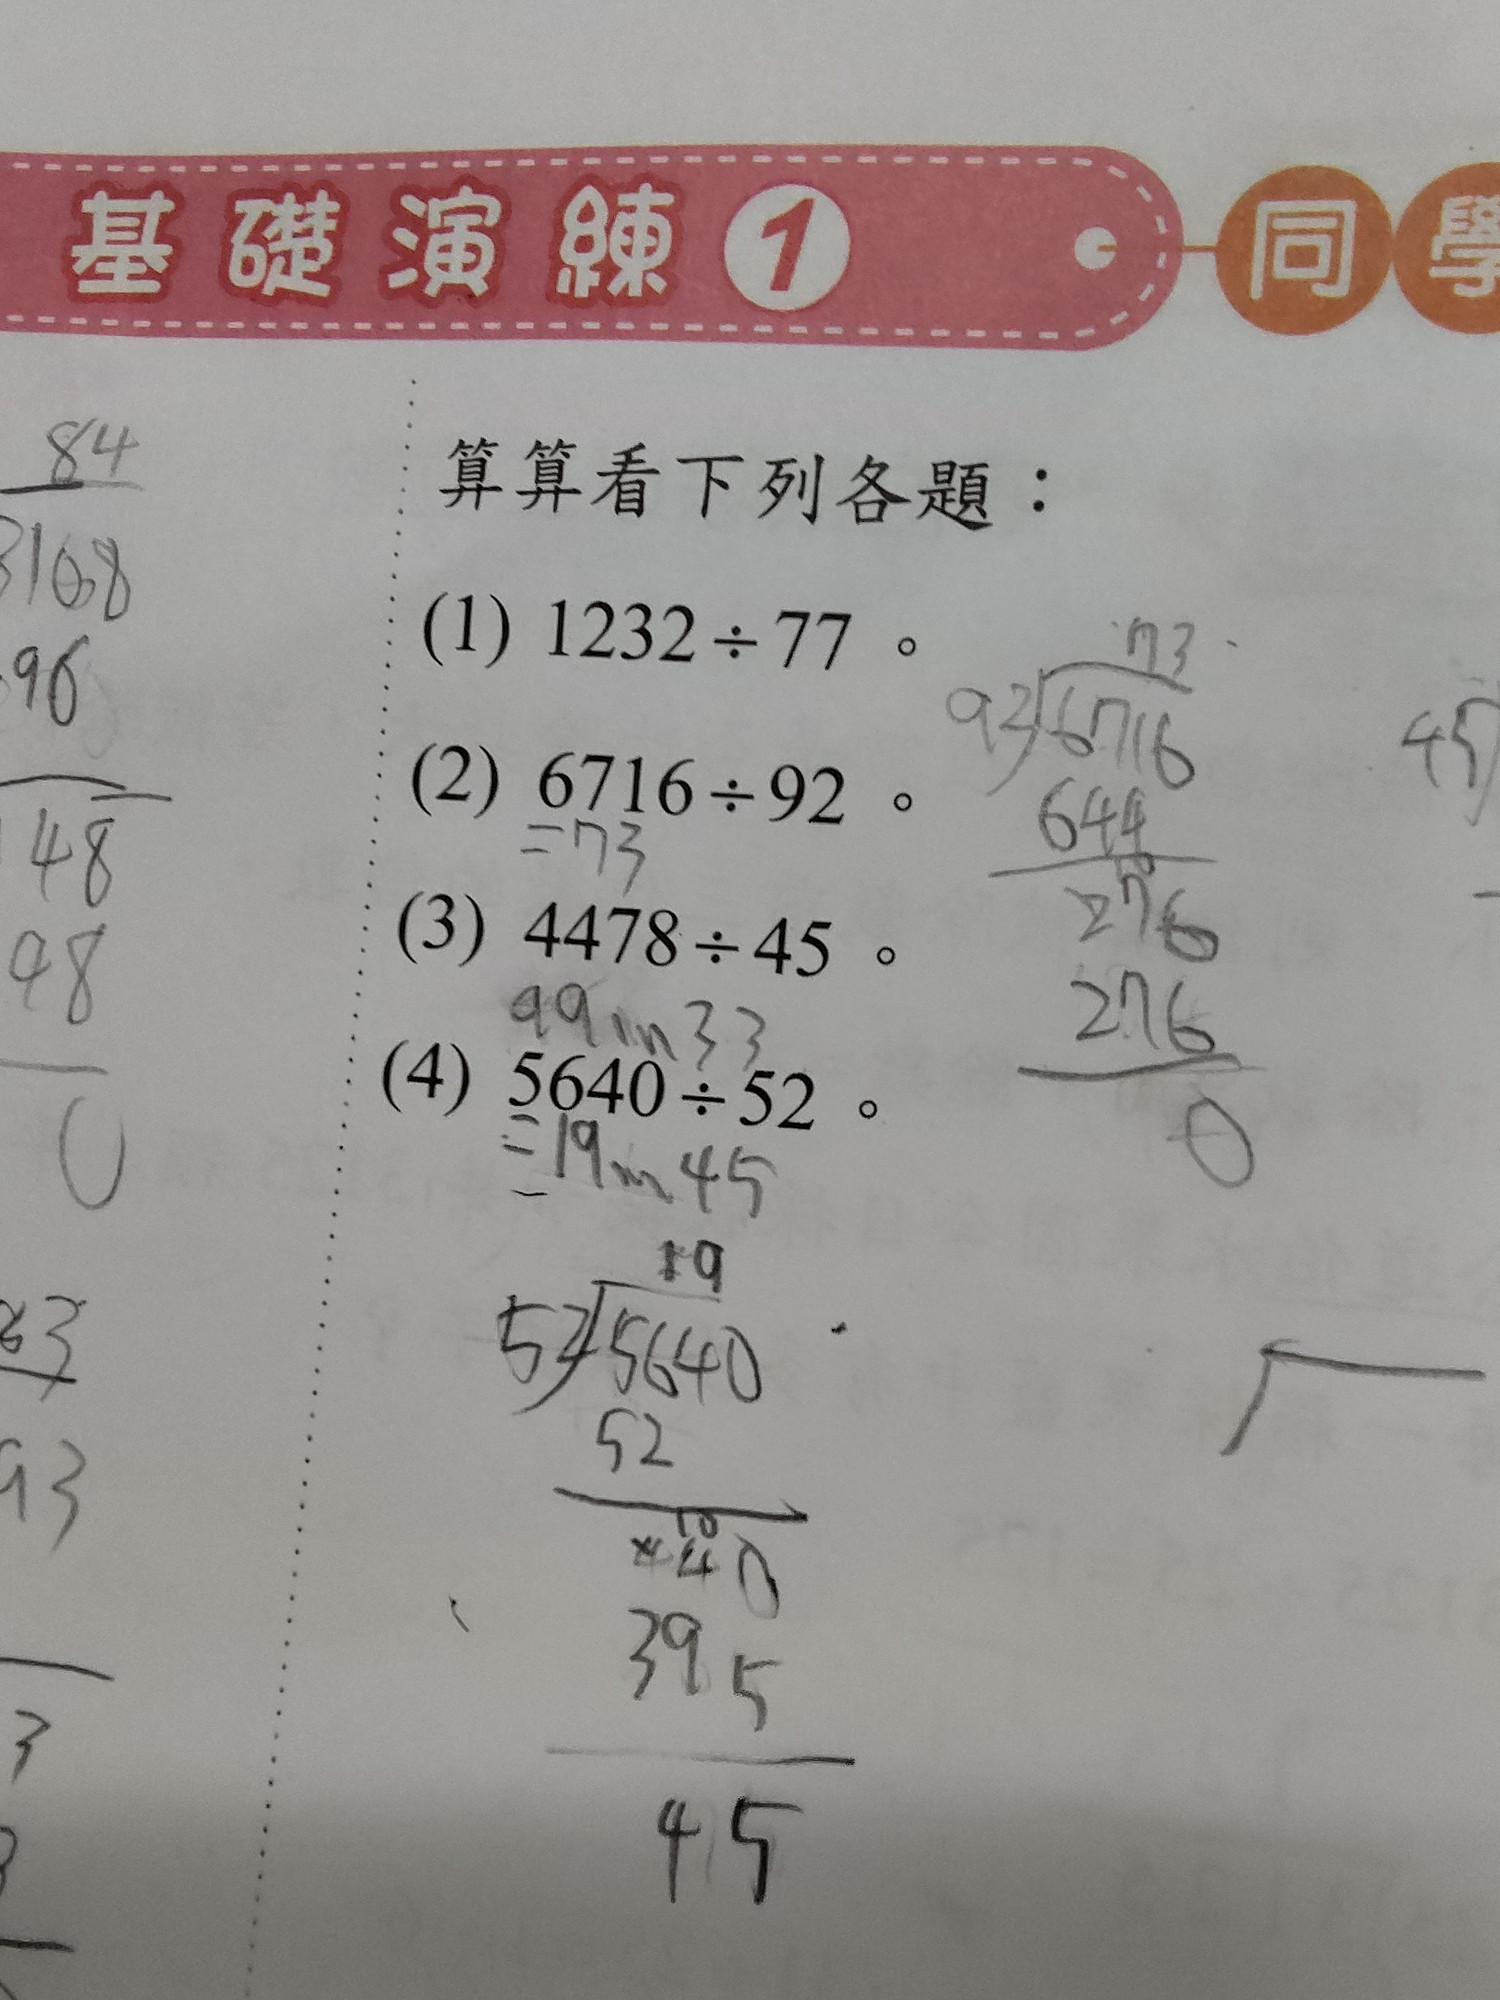 基礎演練1
同學
84
3168
96
148
98
0
算算看下列各題：
(1) 1232÷77。
(2) 6716÷92。
=73
(3) 4478÷45。
99…33
(4) 5640÷52。
=19…45
73
92 6716
644
10
276
276
0
45
19
52 5640
52
10
440
39 5
45
93
3